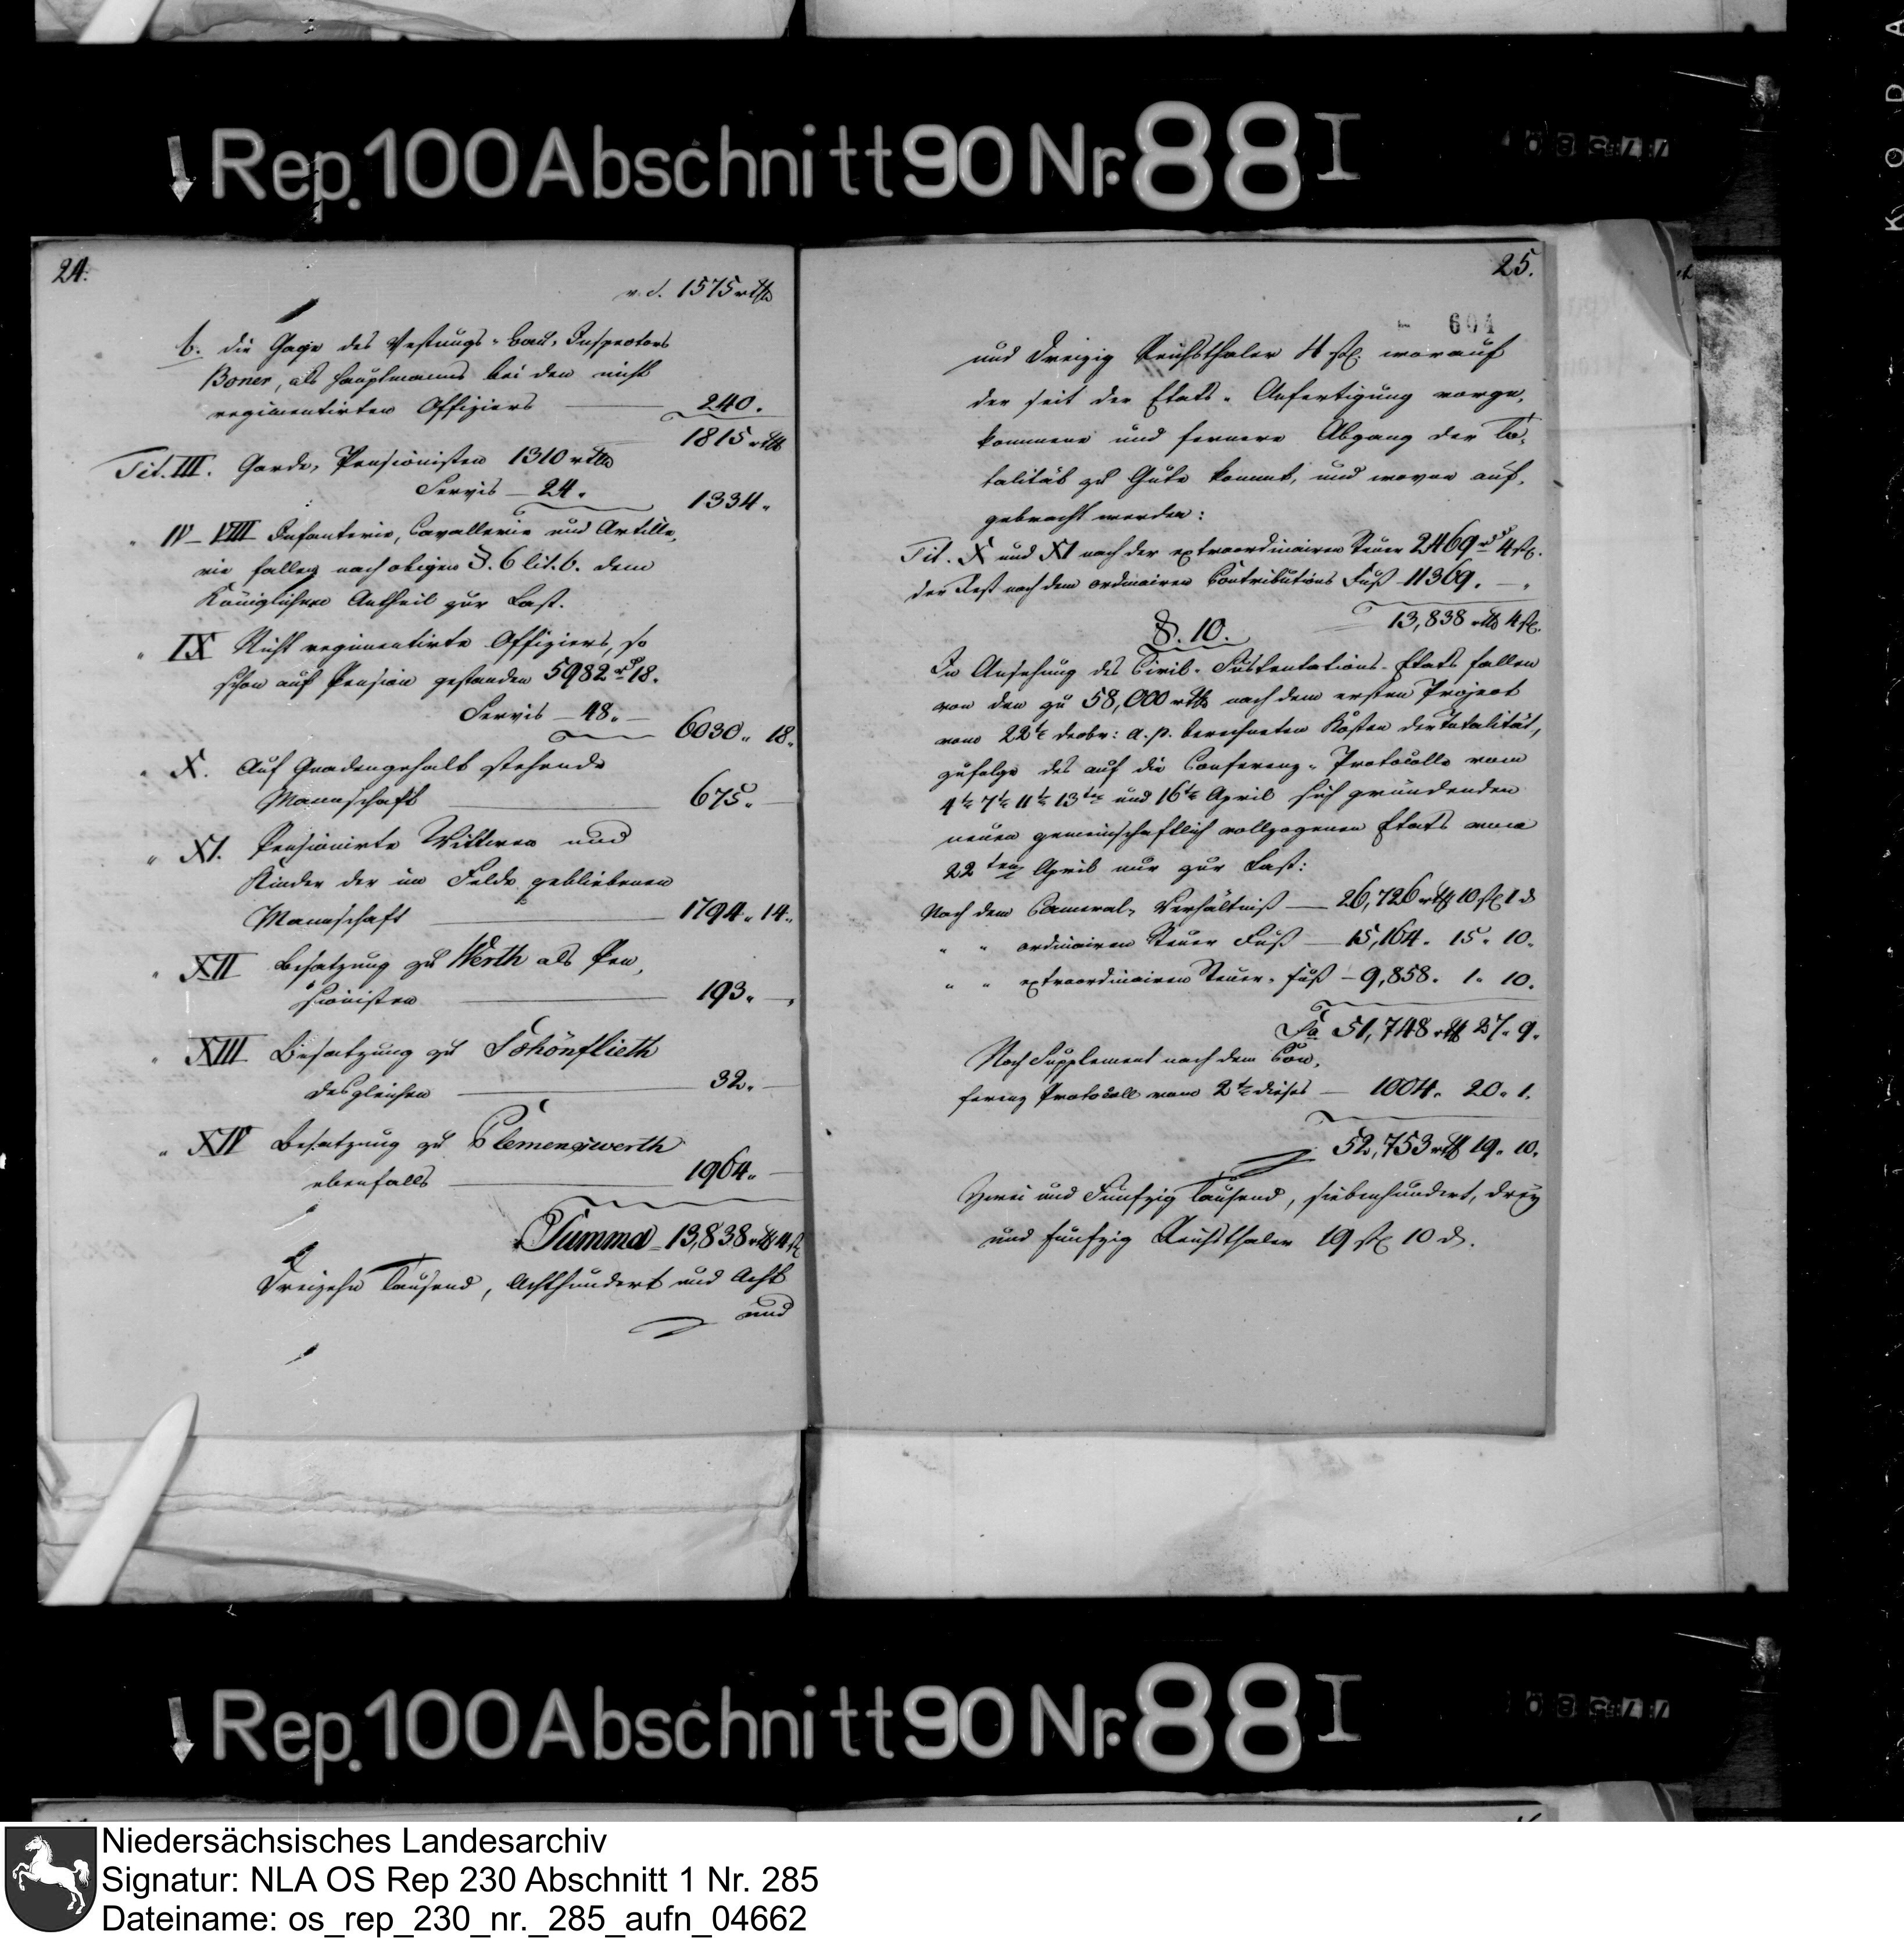 Rep. 100 Abschnitt 90 Nr. 88 I
24.
v. S. 1575 rthlr
b. die Gage des Vestungs-Bau-Inspectors
Boner, als Hauptmanns bei den nicht
regimentirten Offiziers — 240.
1815 rthlr
Tit. III. Garde-Pensionisten 1310 rthlr
Servis — 24. 1334.
" IV–VIII Infanterie, Cavallerie und Artille-
rie fallen nach obigen §. 6 lit. b. dem
Königlichen Antheil zur Last.
" IX Nicht regimentirte Offiziers, so
schon auf Pension gestanden 5982 rt 18.
Servis — 48. — 6030. 18.
" X. Auf Gnadengehalt stehende
Mannschaft — 675. —
" XI. Pensionirte Wittwen und
Kinder der im Felde gebliebenen
Mannschaft — 1794. 14.
" XII Besatzung zu Werth als Pen-
sionisten — 193. —
" XIII Besatzung zu Schönflieth
desgleichen — 32. —
" XIV Besatzung zu Clemenswerth
ebenfalls — 1964. —
Summa — 13,838 rthlr 4 ß
Dreizehn Tausend, Achthundert und Acht
und
25.
604
und dreizig Reichsthaler 4 ß. worauf
der seit der Etats-Anfertigung vorge-
kommene und fernere Abgang der To-
talität zu Gute kommt, und wovon auf-
gebracht werden:
Tit. X und XI nach der extraordinairen Steuer 2469 rt 4 ß.
der Rest nach dem ordinairen Contributions Fuß — 11369. —
13,838 rthlr 4 ß.
§. 10.
In Ansehung des Civil-Sustentations-Etats fallen
von den zu 58,000 rthlr nach dem ersten Project
vom 22te Decbr: a. p. berechneten Kosten der Totalität,
zufolge des auf die Conferenz-Protocolle vom
4te 7te 11te 13ten und 16te April sich gründenden
neuen gemeinschaftlich vollzogenen Etats vom
22ten April nur zur Last:
Nach dem Cameral-Verhältniß — 26,726 rthlr 10 ß 1 d
" " ordinairen Steuer Fuß — 15,164. 15. 10.
" " extraordinairen Steuer-Fuß — 9,858. 1. 10.
Sa 51,748 rthlr 27. 9.
Noch Supplement nach dem Con-
ferenz Protocoll vom 2te dieses — 1004. 20. 1.
52,753 rthlr 19. 10.
Zwei und Funfzig Tausend, siebenhundert, drey
und funfzig Reichsthaler 19 ß 10 d.
Rep. 100 Abschnitt 90 Nr. 88 I
Niedersächsisches Landesarchiv
Signatur: NLA OS Rep 230 Abschnitt 1 Nr. 285
Dateiname: os_rep_230_nr._285_aufn_04662